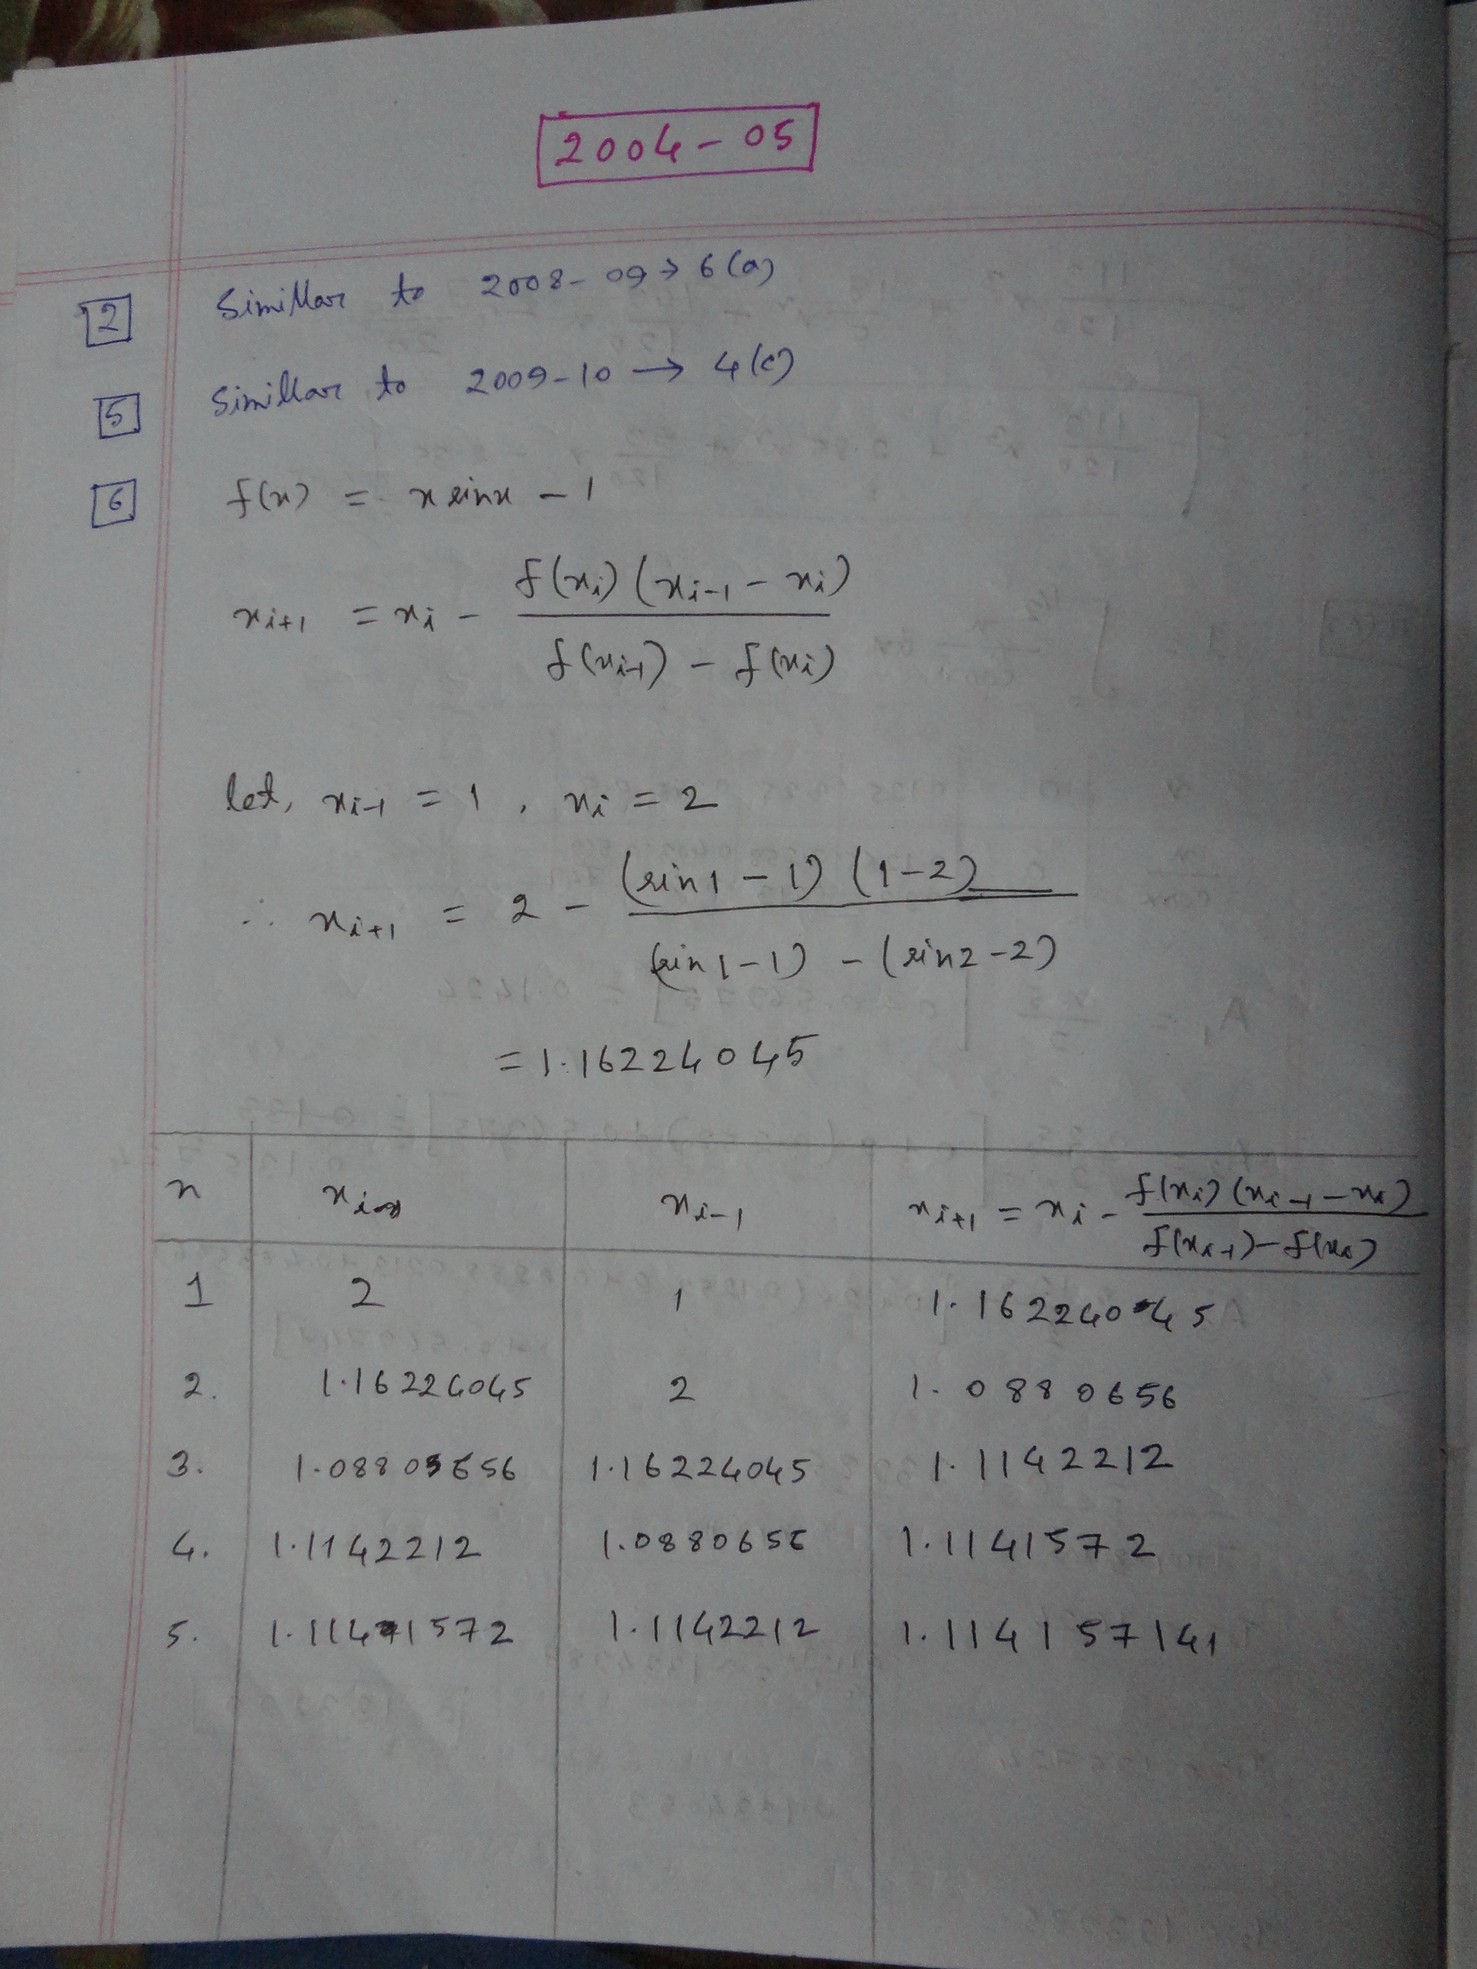 2004-05
2 Simillar to 2008-09 → 6(a)
5 Simillar to 2009-10 → 4(c)
6 f(x) = x sinx - 1
x_{i+1} = x_i - \frac{f(x_i)(x_{i-1} - x_i)}{f(x_{i-1}) - f(x_i)}
let, x_{i-1} = 1, x_i = 2
∴ x_{i+1} = 2 - \frac{(sin1-1)(1-2)}{(sin1-1) - (sin2-2)}
= 1.16224045
n x_i x_{i-1} x_{i+1} = x_i - \frac{f(x_i)(x_{i-1} - x_i)}{f(x_{i-1}) - f(x_i)}
1 2 1 1.16224045
2. 1.16224045 2 1.0880656
3. 1.0880656 1.16224045 1.1142212
4. 1.1142212 1.0880656 1.1141572
5. 1.1141572 1.1142212 1.114157141